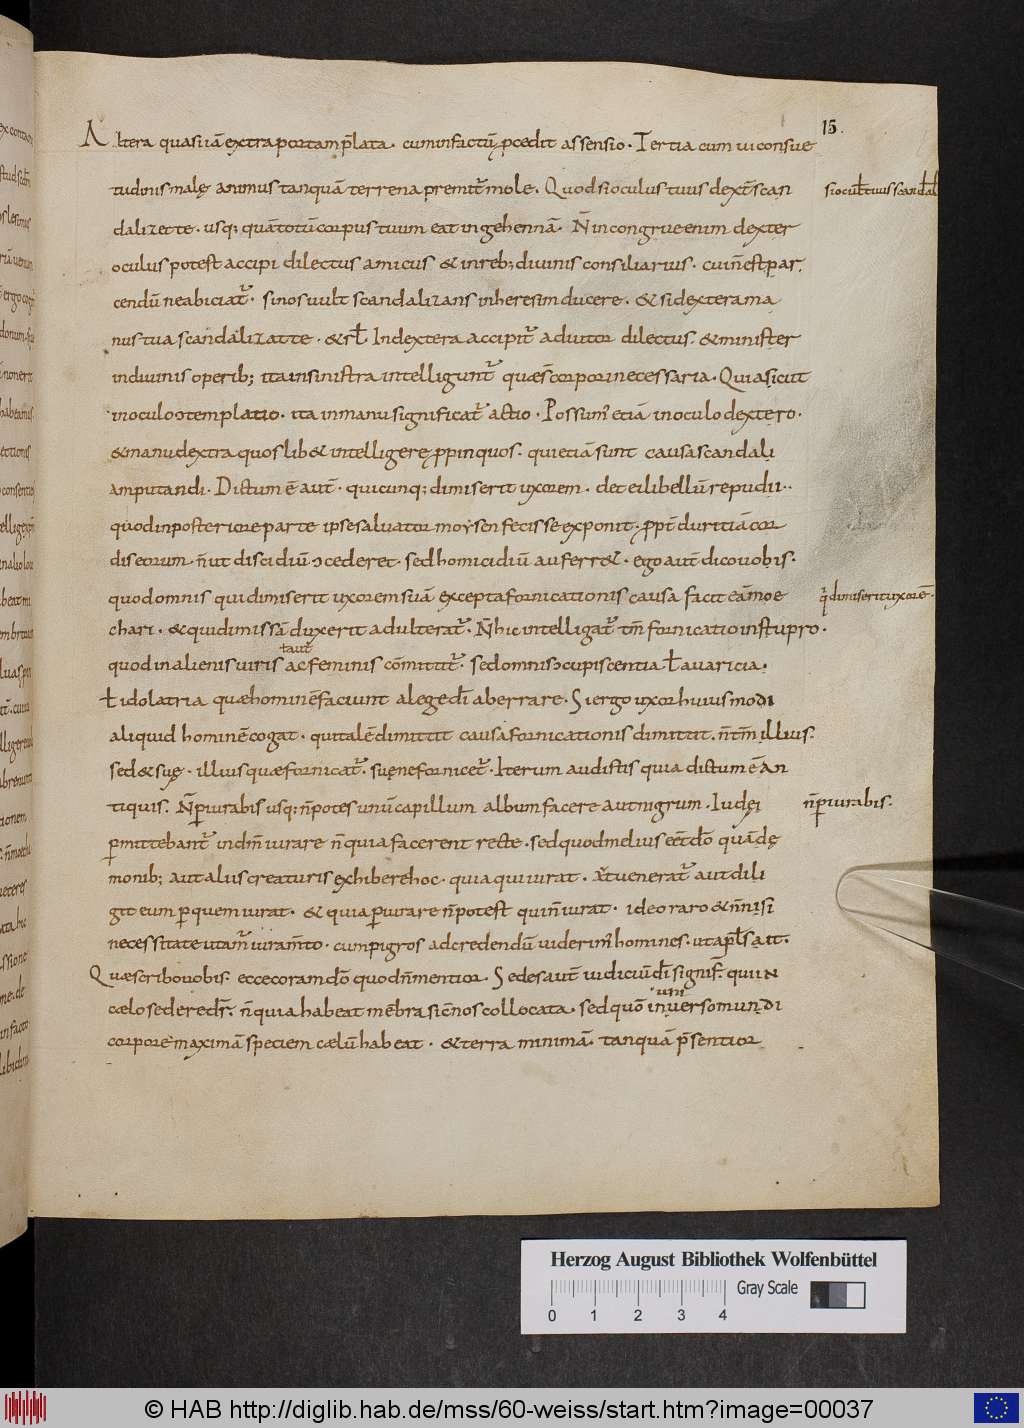 15
Altera quasi iā extra portam p̄lata. cum in factū ꝓcedit assensio. Tertia cum ui consue
tudinis malę animus tanquā terrena premit᷑ mole. Quod si oculus tuus dext̄ scan
si ocul̄ tuus scandal̄
dalizet te. usq; quā totū corpus tuum eat in gehennā. N̄ incongrue enim dexter
oculus potest accipi dilectus amicus & in reb; diuinis consiliarius. cui n̄ est par
cendū ne abiciat᷑. si nos uult scandalizans in heresim ducere. & si dextera ma
nus tua scandalizat te. & rł. In dextera accipit᷑ adiutor dilectus. & minister
in diuinis operib; ita in sinistra intelligunt᷑ quæ s̄ corpori necessaria. Quia sicut
in oculo ɔtemplatio. ita in manu significat᷑ actio. Possum᷒ etiā in oculo dextero.
& manu dextra quoslib& intelligere ꝓpinquos. qui etiā sunt causa scandali
amputandi. Dictum ē aut̄. quicunq; dimiserit uxorem. det ei libellū repudii..
quod in posteriore parte ipse saluator moysen fecisse exponit. ꝓpt̄ duritiā cor
dis eorum. n̄ ut discidiū ɔcederet. sed homicidiū auferr&. ego aut̄ dico uobis.
quod omnis qui dimiserit uxorem suā excepta fornicationis causa facit eā moe
q̇ dimiserit uxorē.
chari. & qui dimissā duxerit adulterat᷑. N̄ hic intelligat᷑ tm̄ fornicatio in stupro.
ł aut̄
quod in alienis uiris ac feminis cōmittit᷑. sed omnis ɔcupiscentia ł auaricia.
ł idolatria quæ hominē faciunt a lege dī aberrare. Si ergo uxor huiusmodi
aliquid hominē cogat. qui talē dimittit causa fornicationis dimittit. n̄ tm̄ illius.
sed & suę. illius quæ fornicat᷑. suę ne fornicet᷑. Iterum audistis quia dictum ē an
tiquis. N̄ ꝑiurabis usq; n̄ potes unū capillum album facere aut nigrum. Iudęi
n̄ ꝑiurabis.
ꝑmittebant᷑ in dm̄ iurare n̄ quia facerent recte. sed quod melius eēt dō quā dę
monib; aut aliis creaturis exhibere hoc. quia qui iurat. aut uenerat᷑ aut dili
git eum ꝑ quem iurat. & quia ꝑiurare n̄ potest qui n̄ iurat. ideo raro & n̄ nisi
necessitate utam᷑ iuram̄to. cum pigros ad credendū uiderim᷒ homines. ut apl̄s ait.
Quæ scribo uobis. ecce coram dō quod n̄ mentior. Sedes aut̄ iudiciū dī signif̄. qui in
cælo sedere dr̄. n̄ quia habeat mēbra sic nos collocata. sed quō in uniuerso mundi
corpore maximā speciem cælū habeat. & terra minimā. tanquā p̄sentior
Herzog August Bibliothek Wolfenbüttel
0 1 2 3 4
Gray Scale
© HAB http://diglib.hab.de/mss/60-weiss/start.htm?image=00037